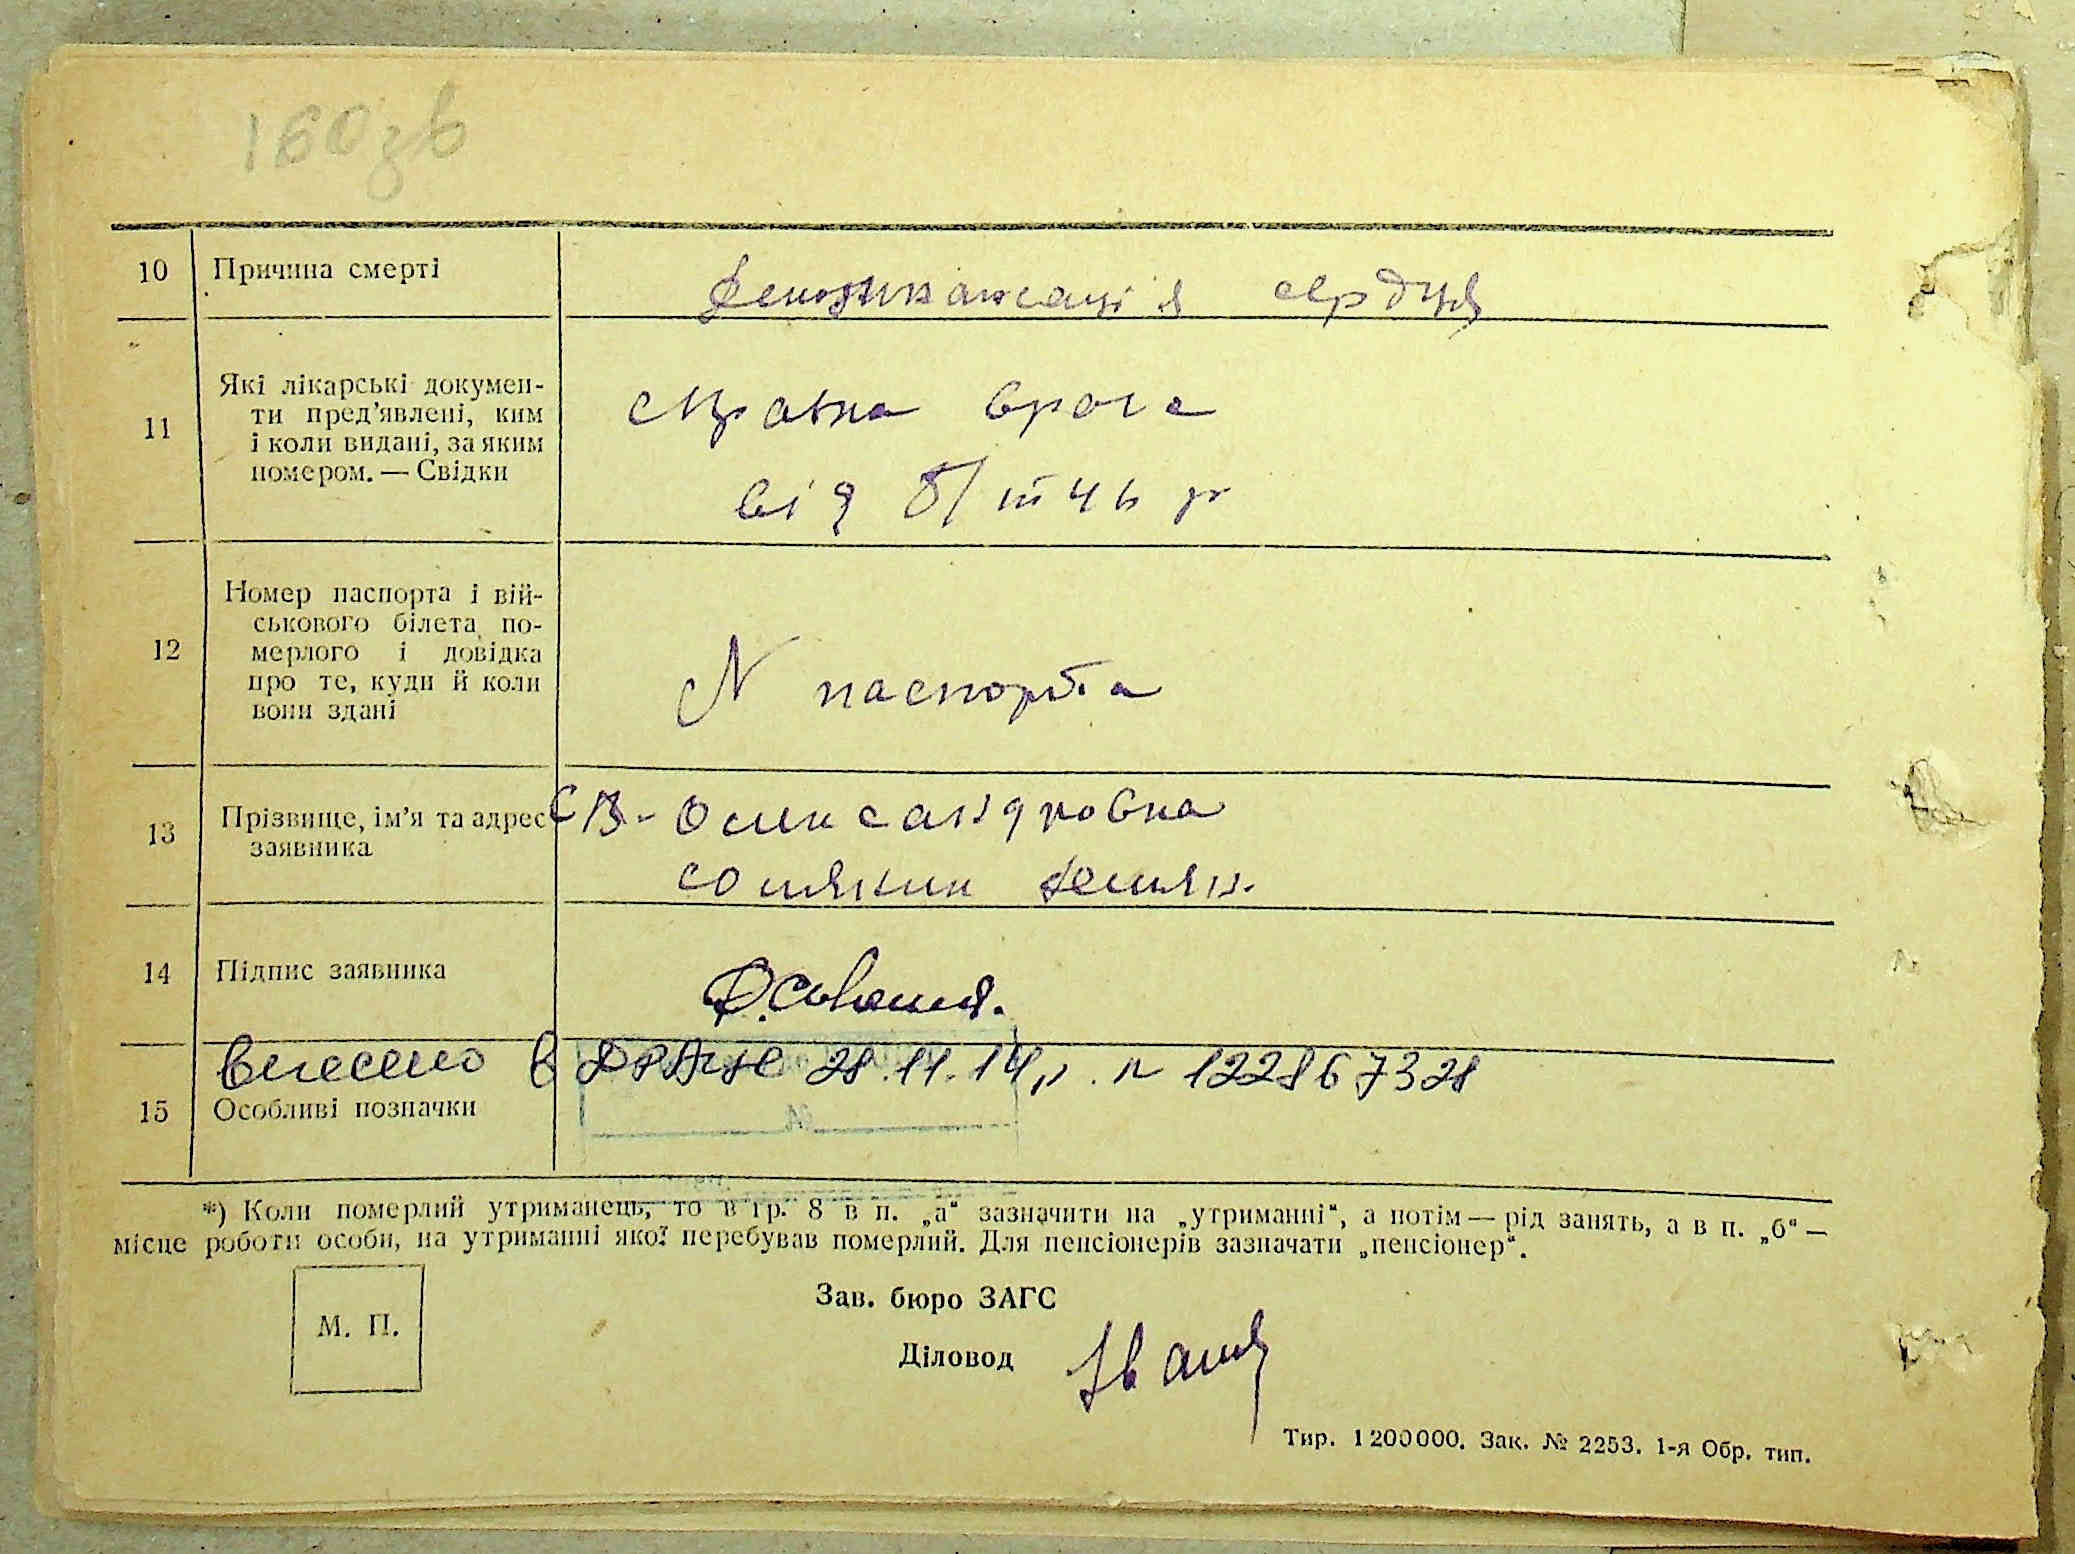 160зв
10 Причина смерті
сердця
11 Які лікарські докумен-
ти пред'явлені, ким
і коли видані, за яким
номером. — Свідки
справка врача
від
12 Номер паспорта і вій-
ськового білета по-
мерлого і довідка
про те, куди й коли
вони здані
N паспорта
13 Прізвище, ім'я та адрес
заявника
14 Підпис заявника
внесено в 28.11.14р. N 122867328
15 Особливі позначки
*) Коли померлий утриманець, то в гр. 8 в п. „а“ зазначити на „утриманні“, а потім — рід занять, а в п. „б“ —
місце роботи особи, на утриманні якої перебував померлий. Для пенсіонерів зазначати „пенсіонер“.
М. П.
Зав. бюро ЗАГС
Діловод
Тир. 1200000. Зак. № 2253. 1-я Обр. тип.